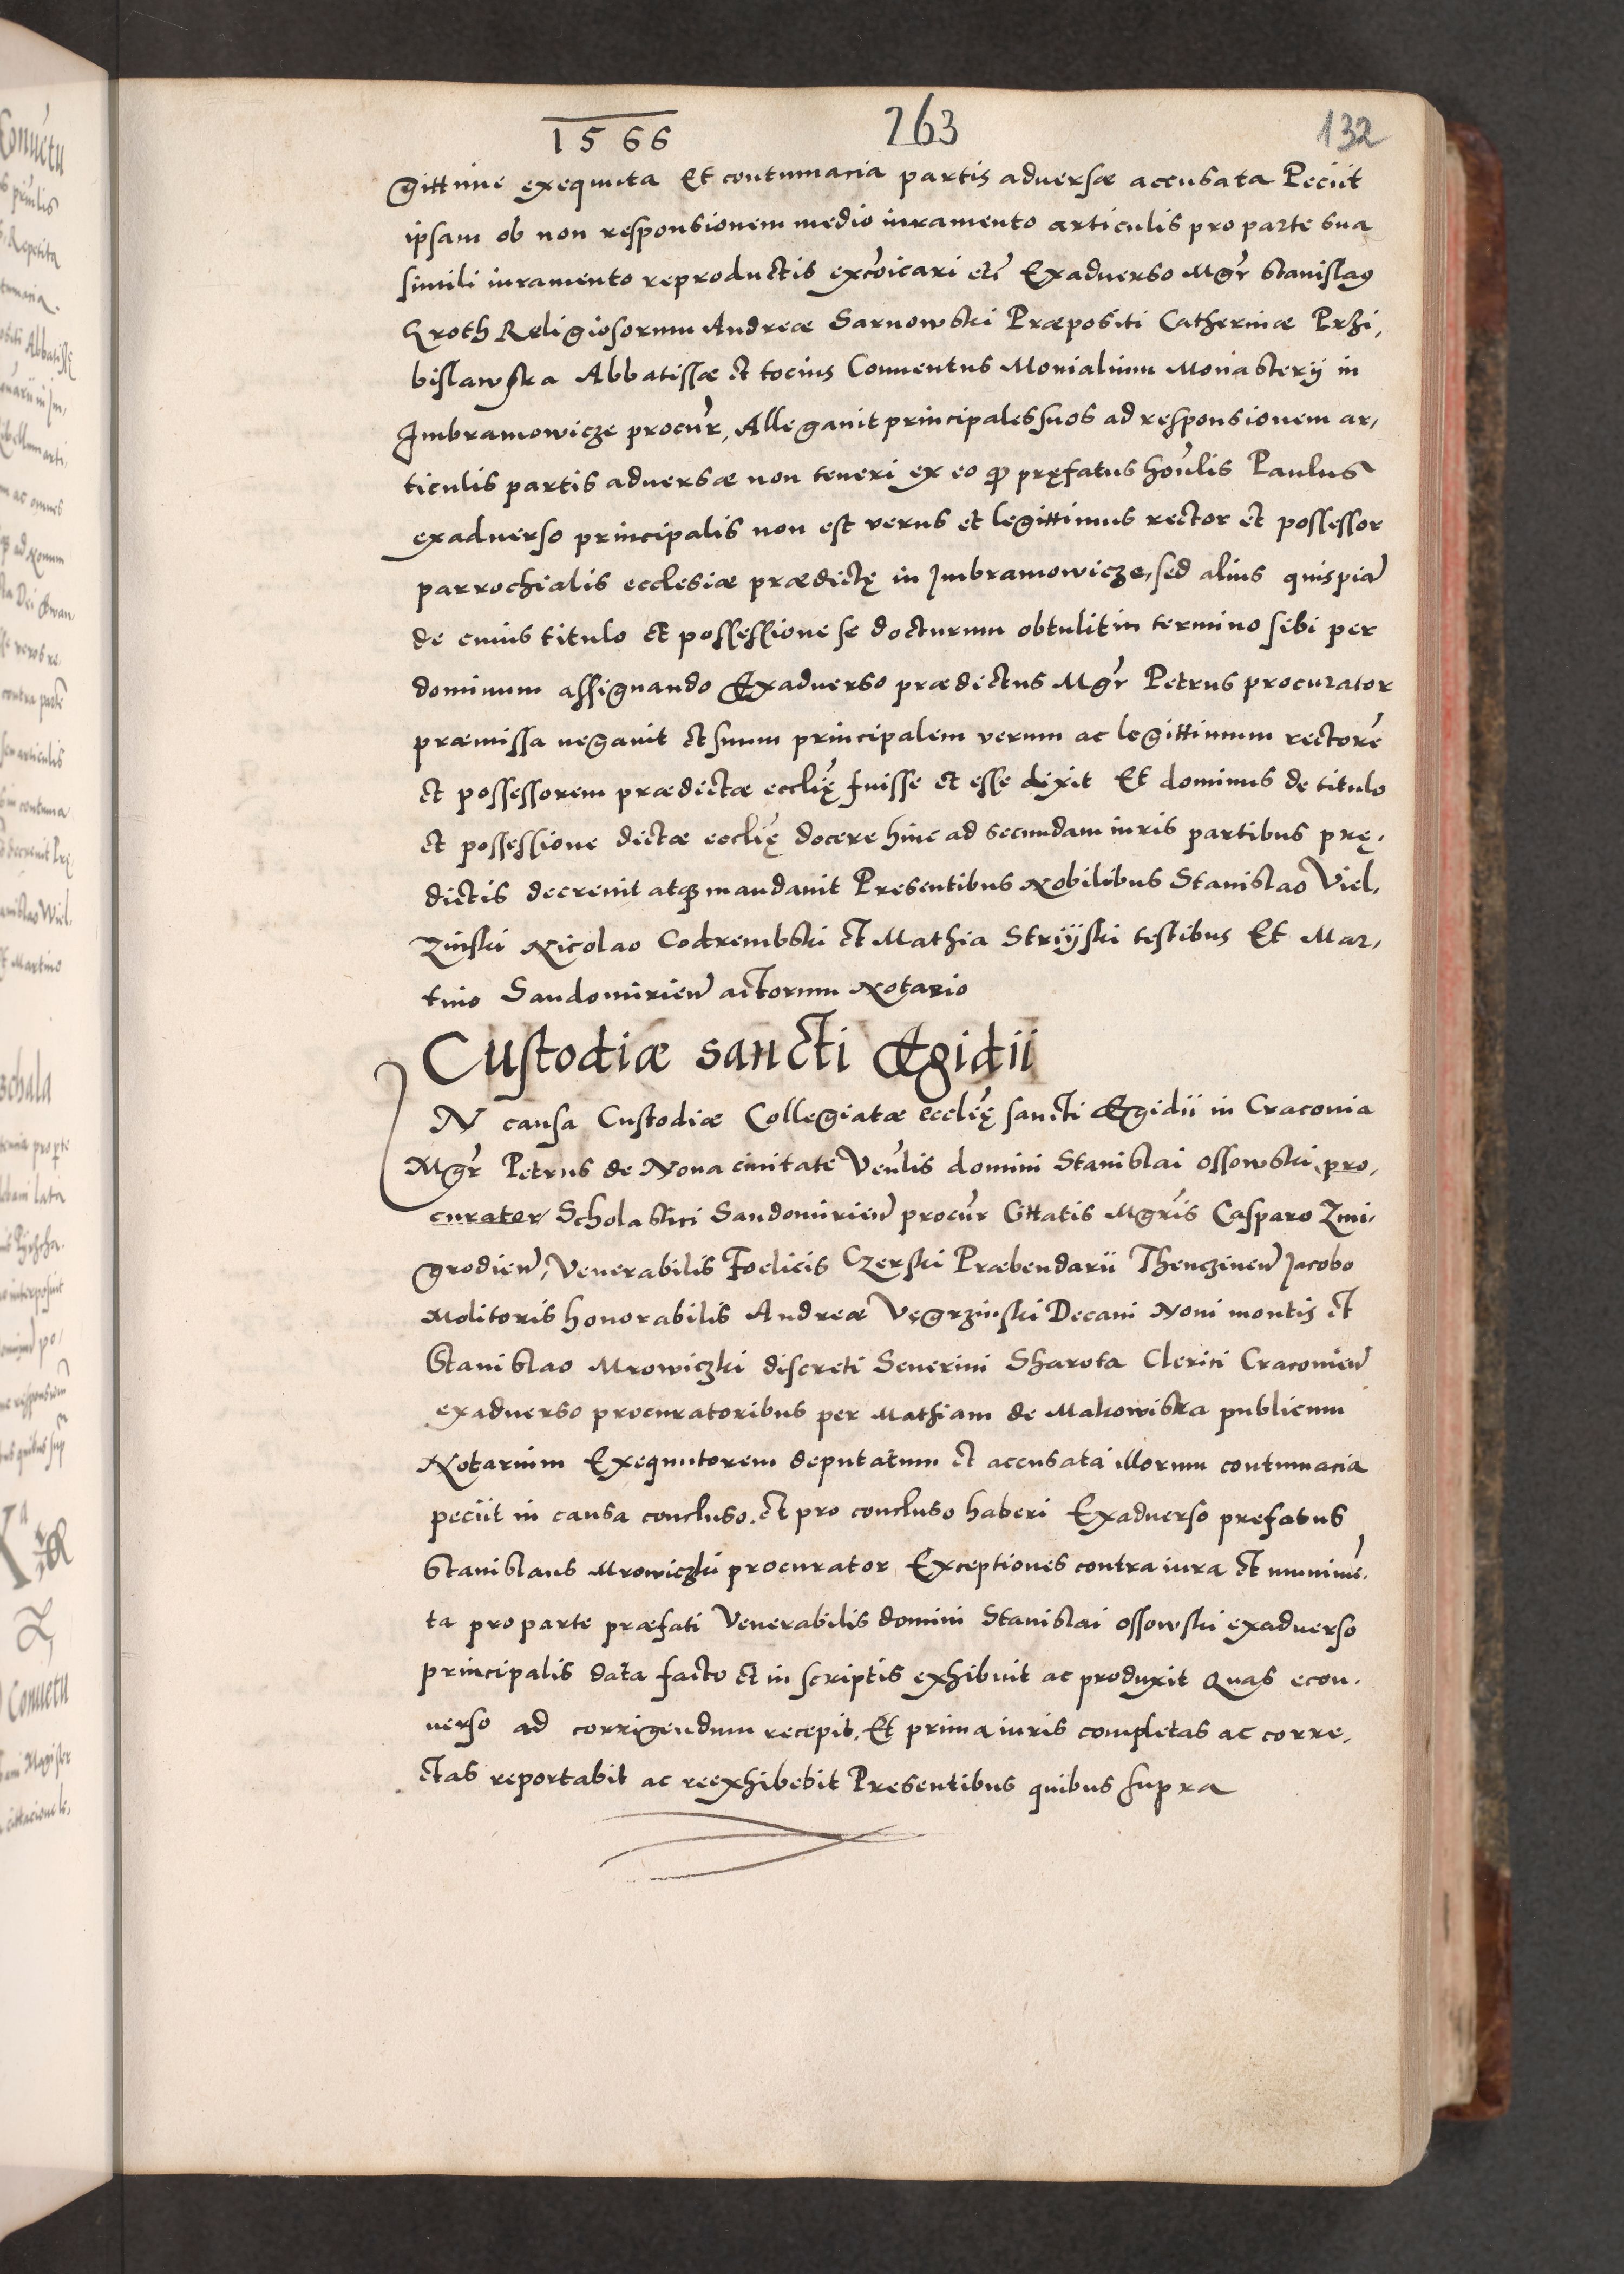 1566 263 132
gittime exequuta Et contumacia partis aduersæ accusata Peciit
ipsam ob non responsionem medio iuramento articulis pro parte sua
simili iuramento reproductis excōicari etc̄ Exaduerso Mgr̄ Stanislaꝰ
Kroth Religiosorum Andreæ Sarnowski Præpositi Catherinæ Przi,
bislawska Abbatissæ et tocius Conuentus Monialium Monasterij in
Imbramowicze procur̄, Allegauit principales suos ad responsionem ar,
ticulis partis aduersæ non teneri ex eo ꝙ pręfatus hon̄lis Paulus
exaduerso principalis non est verus et legittimus rector et possessor
parrochialis ecclesiæ prædictę in Imbramowicze, sed alius quispiā
de cuius titulo et possessione se docturum obtulit in termino sibi per
dominum assignando Exaduerso prædictus Mgr̄ Petrus procurator
præmissa negauit et suum principalem verum ac legittimum rectorē
et possessorem prædictæ ecclię̄ fuisse et esse dixit Et dominus de titulo
et possessione dictæ ecclię̄ docere hinc ad secundam iuris partibus prę,
dictis decreuit atqꝫ mandauit Presentibus Nobilibus Stanislao Viel,
zinski Nicolao Codrembski et Mathia Striijski testibus Et Mar,
tino Sandomirien̄ actorum Notario
Custodiæ sancti Ægidii
IN causa Custodiæ Collegiatæ ecclię̄ sancti Ægidii in Cracouia
Mgr̄ Petrus de Noua ciuitate Ven̄lis domini Stanislai Ossowski pro,
curator Scholastici Sandomirien̄ procur̄ Cittatis Mgr̄is Casparo Zmi,
grodien̄, Venerabilis Foelicis Czerski Præbendarii Thenczinen̄ Jacobo
Molitoris honorabilis Andreæ Vęgrzinski Decani Noui montis et
Stanislao Mrowiczki discreti Seuerini Sharota Clerici Cracouien̄
exaduerso procuratoribus per Mathiam de Makowiska publicum
Notarium Exequutorem deputatum et accusata illorum contumacia
peciit in causa concluso. et pro concluso haberi Exaduerso prefatus
Stanislaus Mrowiczki procurator Exceptiones contra iura et munimē,
ta pro parte præfati Venerabilis domini Stanislai Ossowski exaduerso
principalis data facto et in scriptis exhibuit ac produxit Quas econ,
uerso ad corrigendum recepit. Et prima iuris completas ac corre,
ctas reportabit ac reexhibebit Presentibus quibus supra